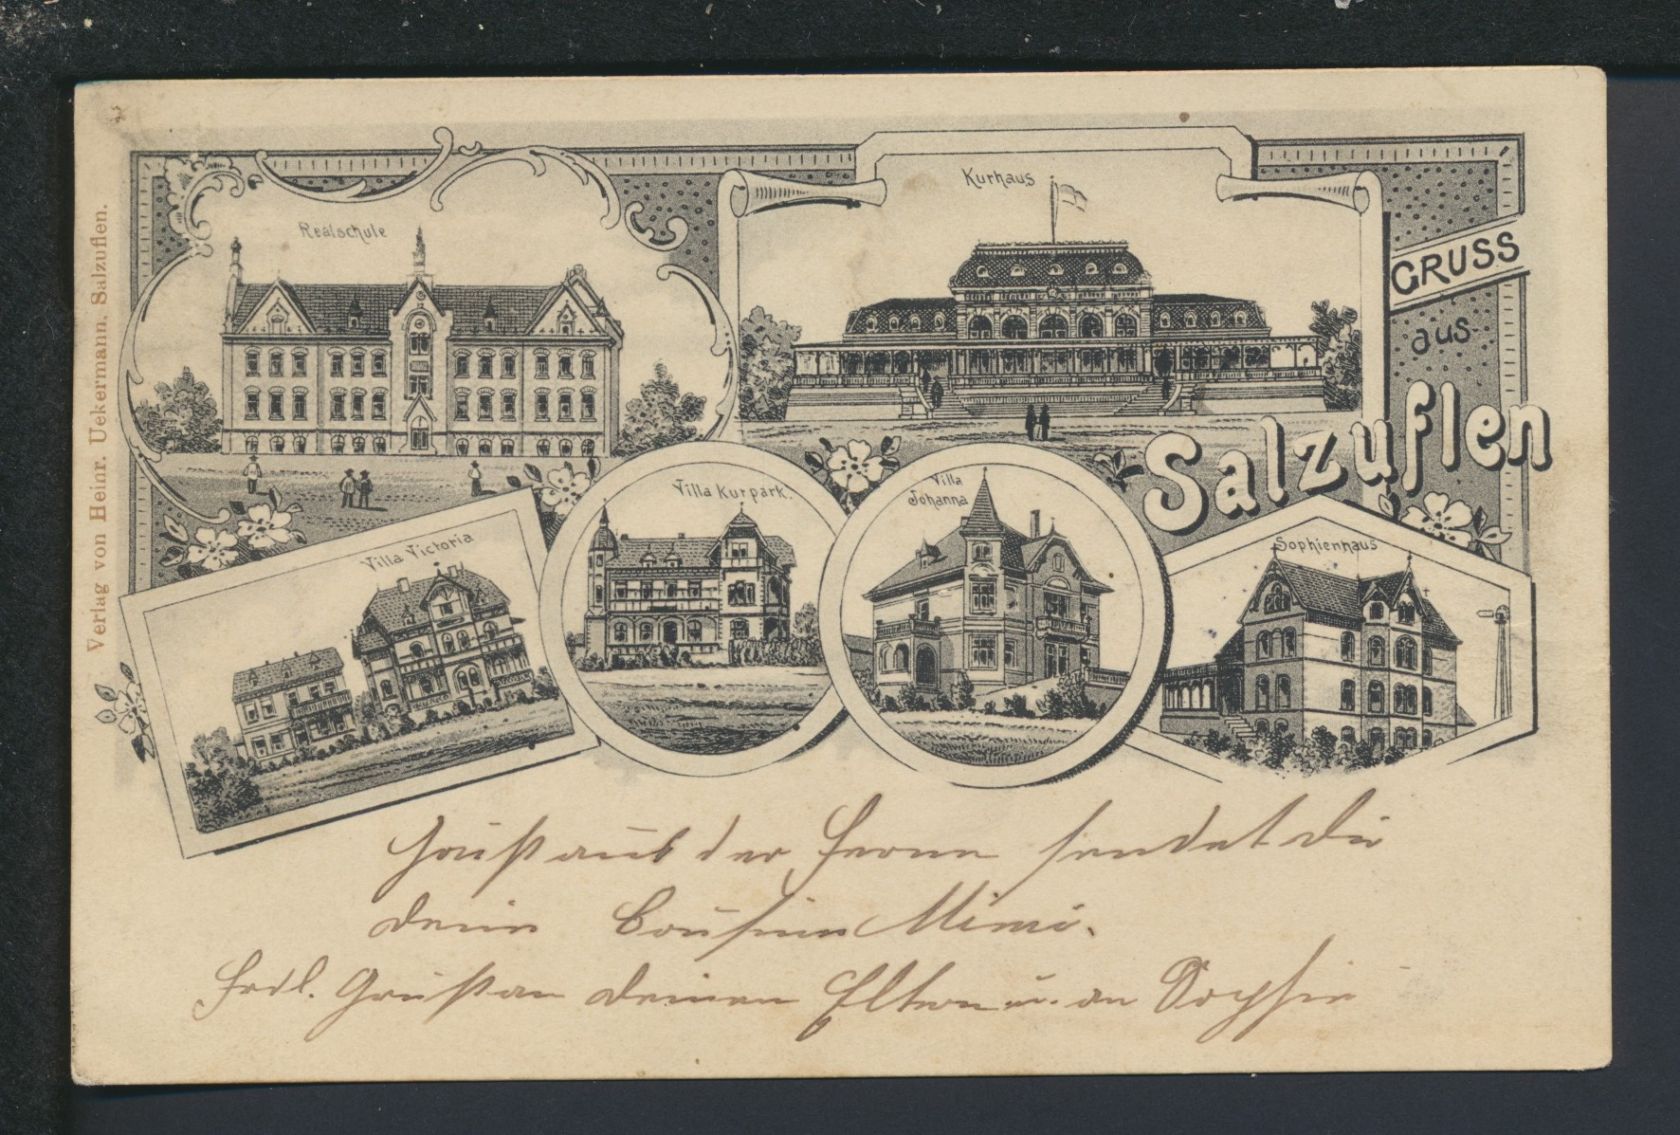 Verlag von Heinr. Uekermann, Salzuflen.
Realschule
Kurhaus
GRUSS
aus
Salzuflen
Villa Victoria
Villa Kurpark.
Villa
Johanna
Sophienhaus
Gruß aus der Ferne sendet dir
deine Cousine Mimi.
Frdl. Gruß an deine Eltern u. an Sophie